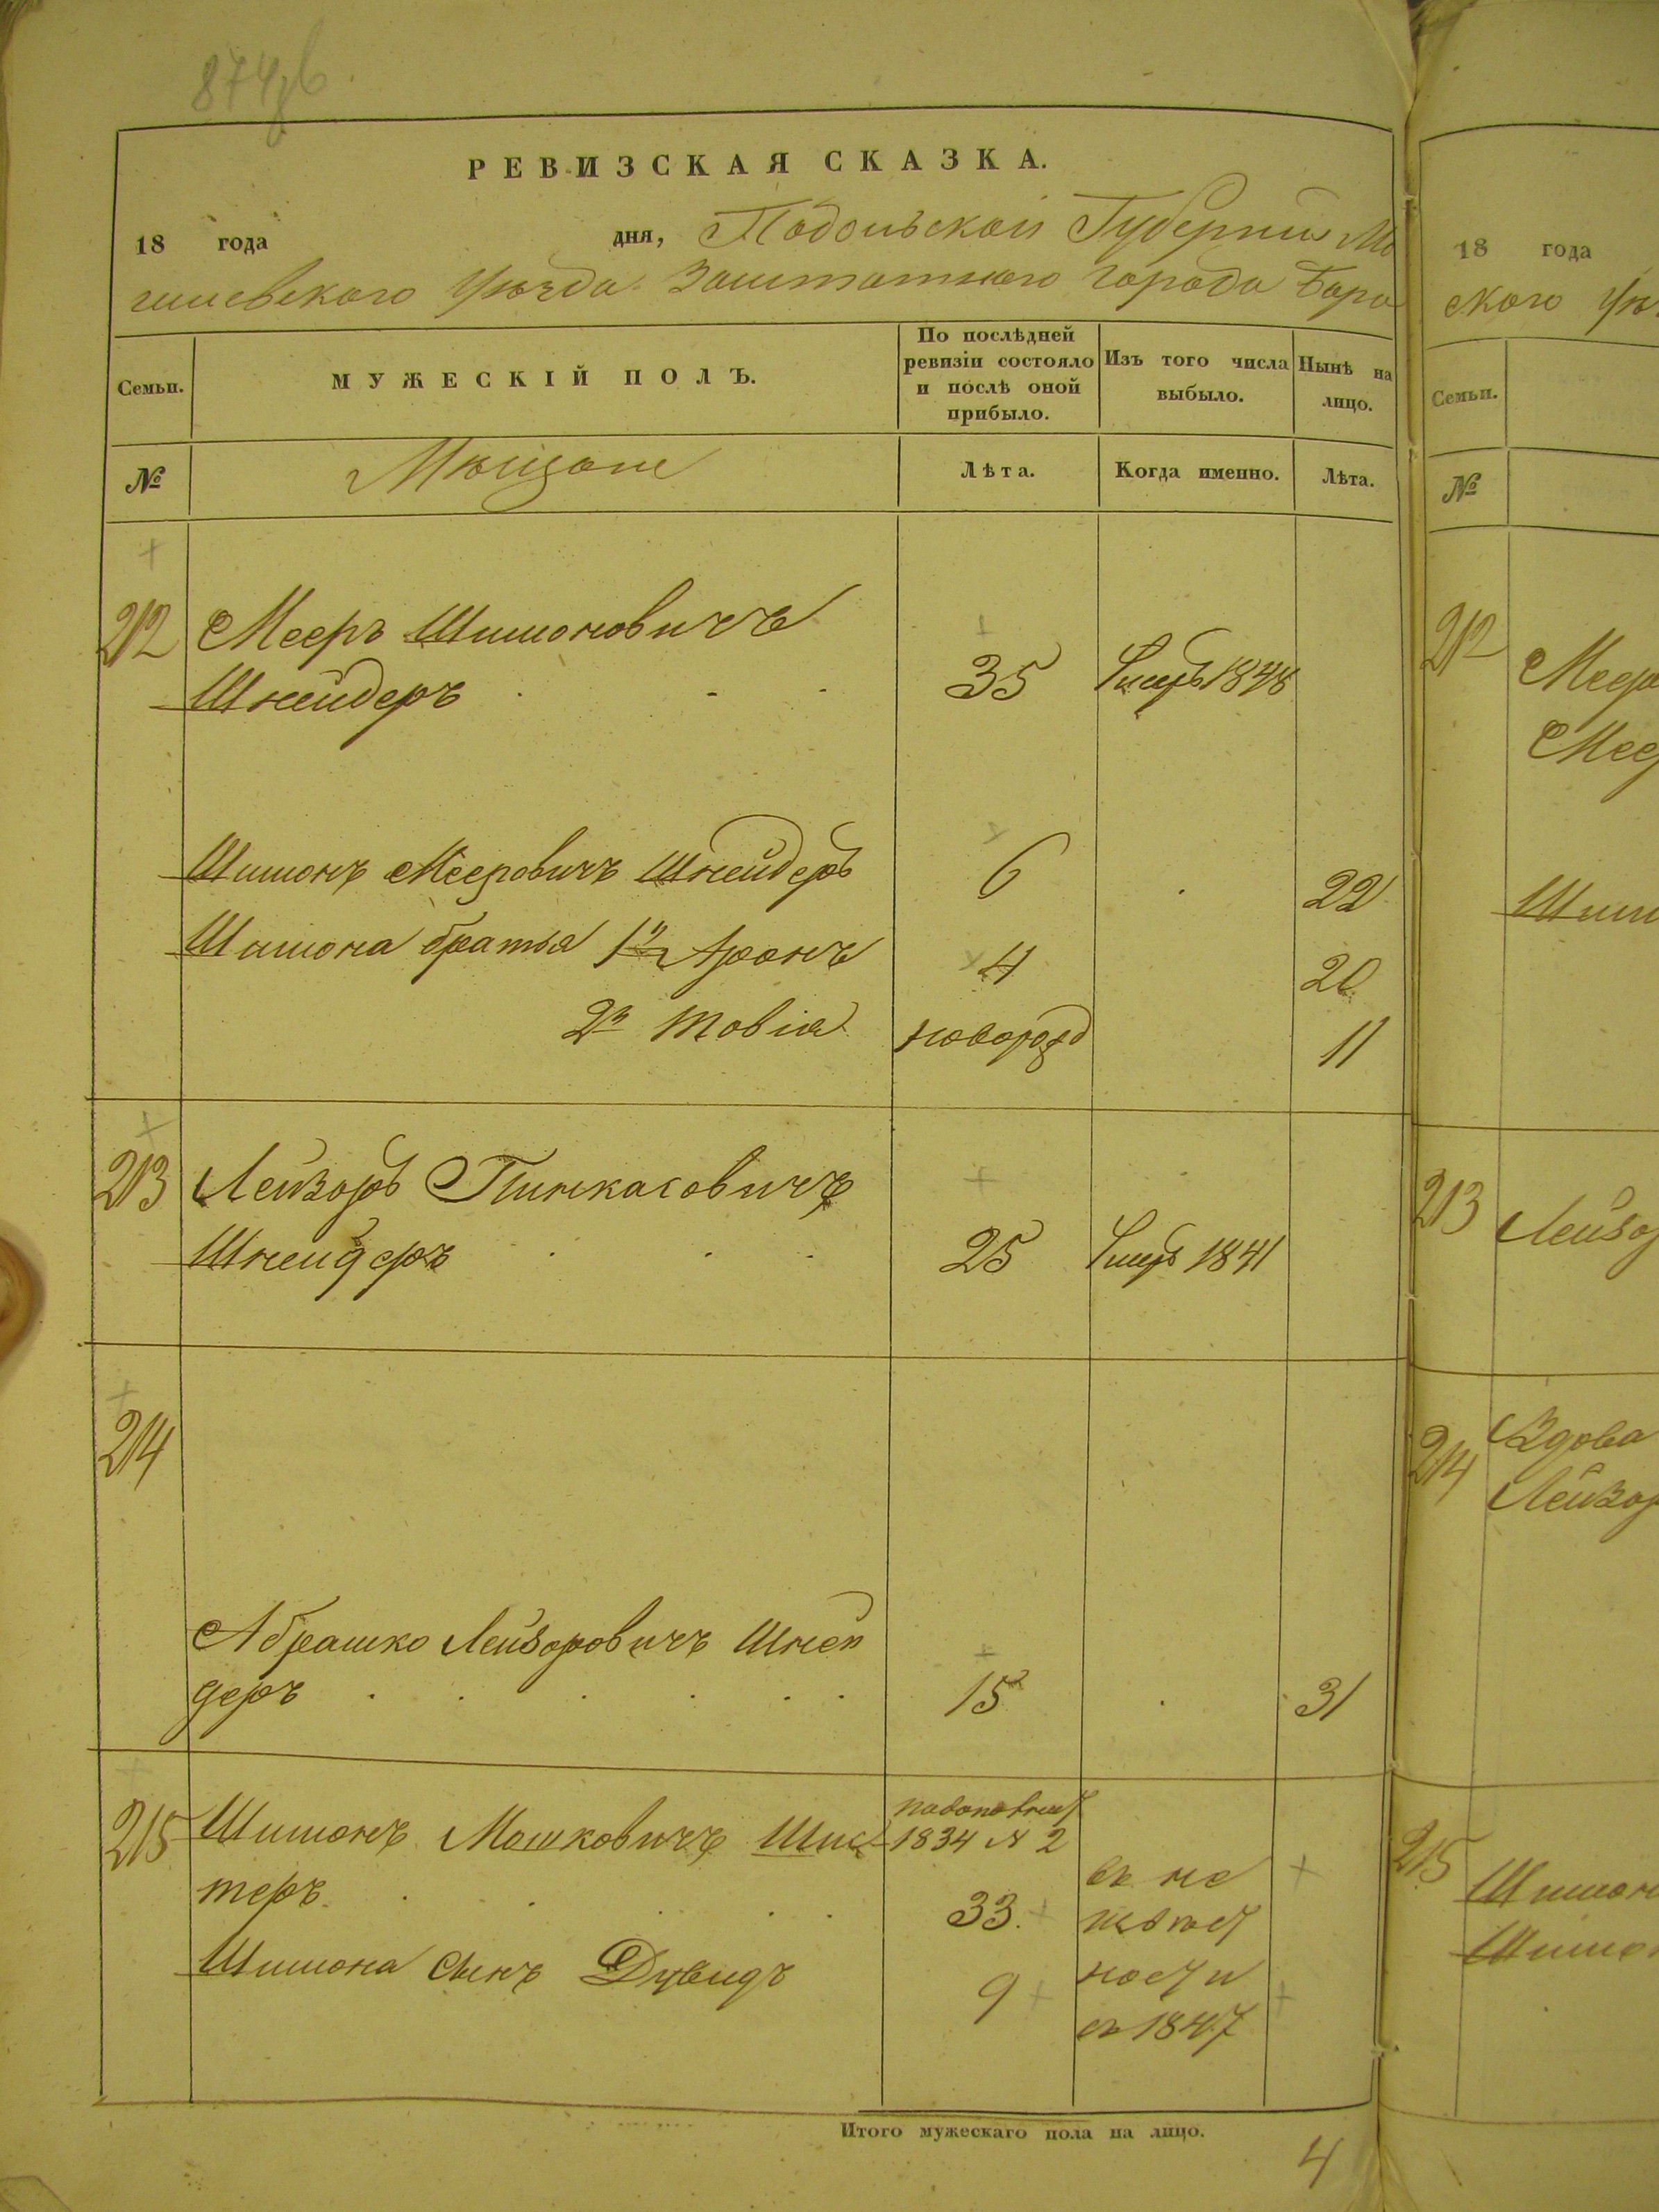 РЕВИЗСКАЯ СКАЗКА.
18 года дня, Подольской Губернии Мо
гилевского Уѣзда Заштатного города Бара
Семьи.
МУЖЕСКІЙ ПОЛЪ.
По послѣдней ревизіи состояло и послѣ оной прибыло.
Изъ того числа выбыло.
Нынѣ на лицо.
№
Мѣщане
Лѣта.
Когда именно.
Лѣта.
212 Мееръ Шимоновичъ
Шнейдеръ 35 1848
Шимонъ Мееровичъ Шнейдеръ 6 22
Шимона братья 1й Аронъ 4 20
2й Товія новорожд 11
213 Лейзоръ Пинкасовичъ
Шнейдеръ 25 Умеръ 1841
214
Абрашко Лейзоровичъ Шней
деръ 15 31
215 Шимонъ Мошковичъ
1834 № 2
теръ 33.
Шимона сынъ Дувидъ 9
съ 1847
Итого мужескаго пола на лицо.
4
18 года
ского Уѣ
Семьи.
№
212
Меера
Меер
Шим
213 Лейзор
214 Вдова
Лейзор
215 Шимон
Шимон